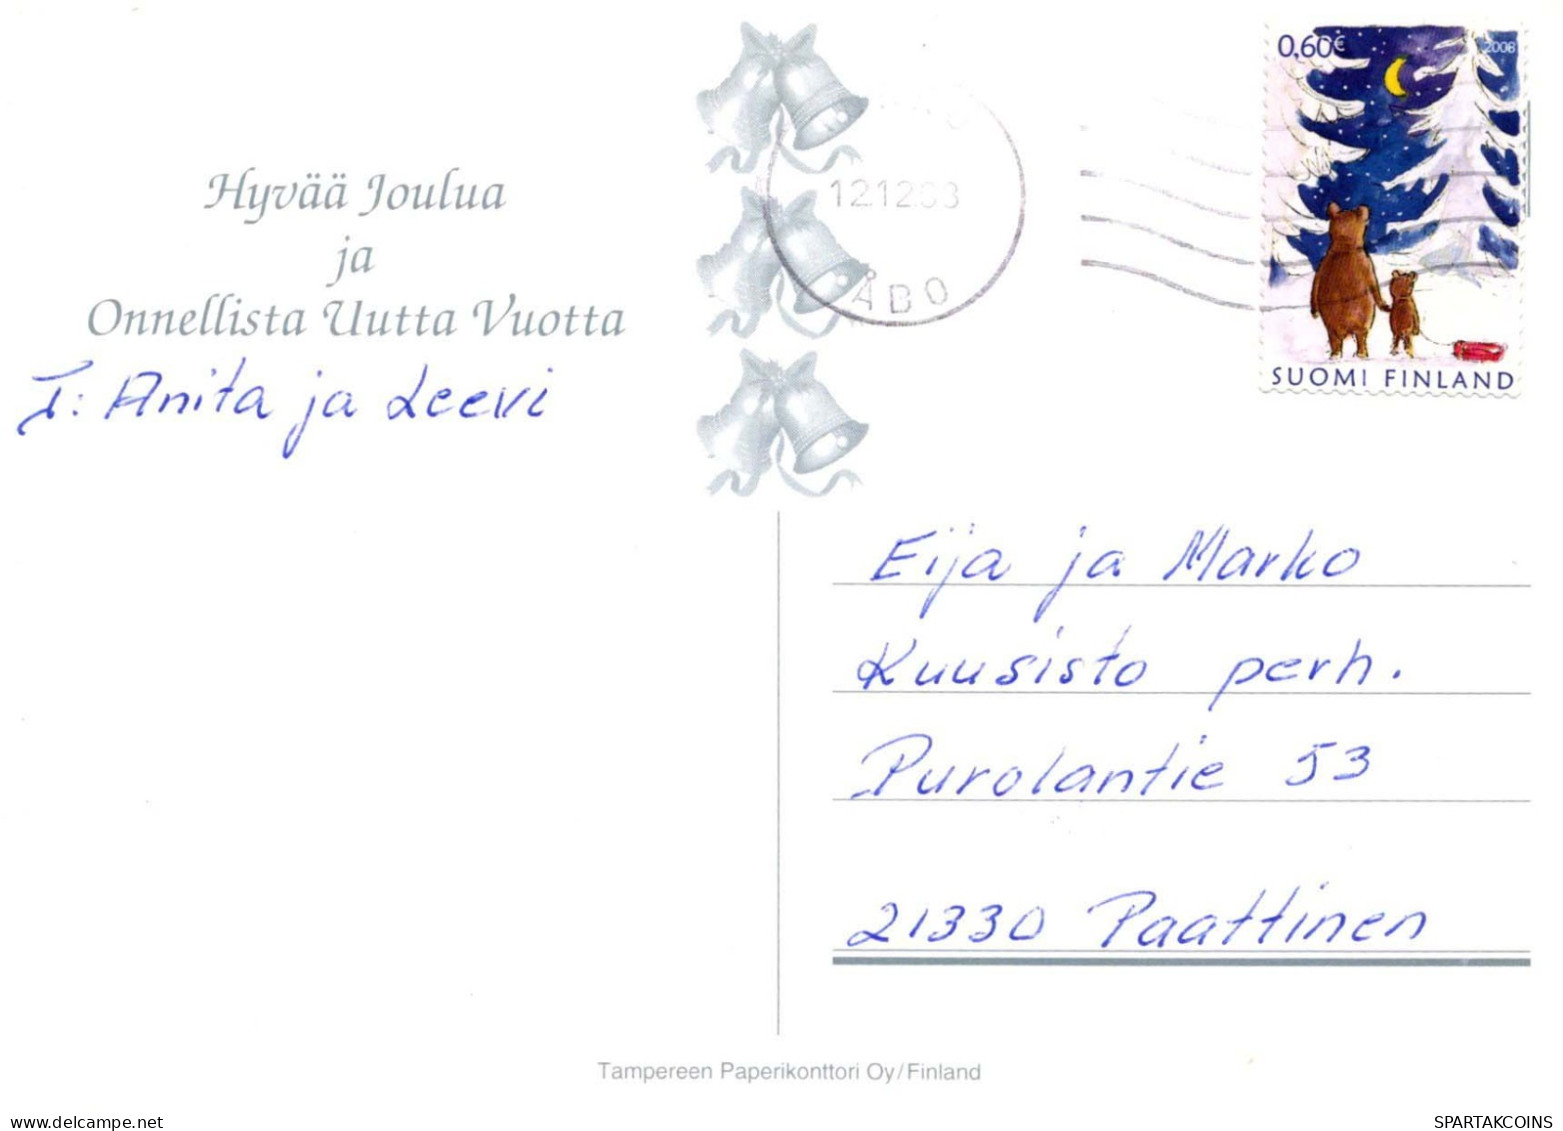 0,60€ 2008
12.12.08
ÅBO
SUOMI FINLAND
Hyvää Joulua
ja
Onnellista Uutta Vuotta
T: Anita ja Leevi
Eija ja Marko
Kuusisto perh.
Purolantie 53
21330 Paattinen
Tampereen Paperikonttori Oy/Finland
SPARTAKCOINS